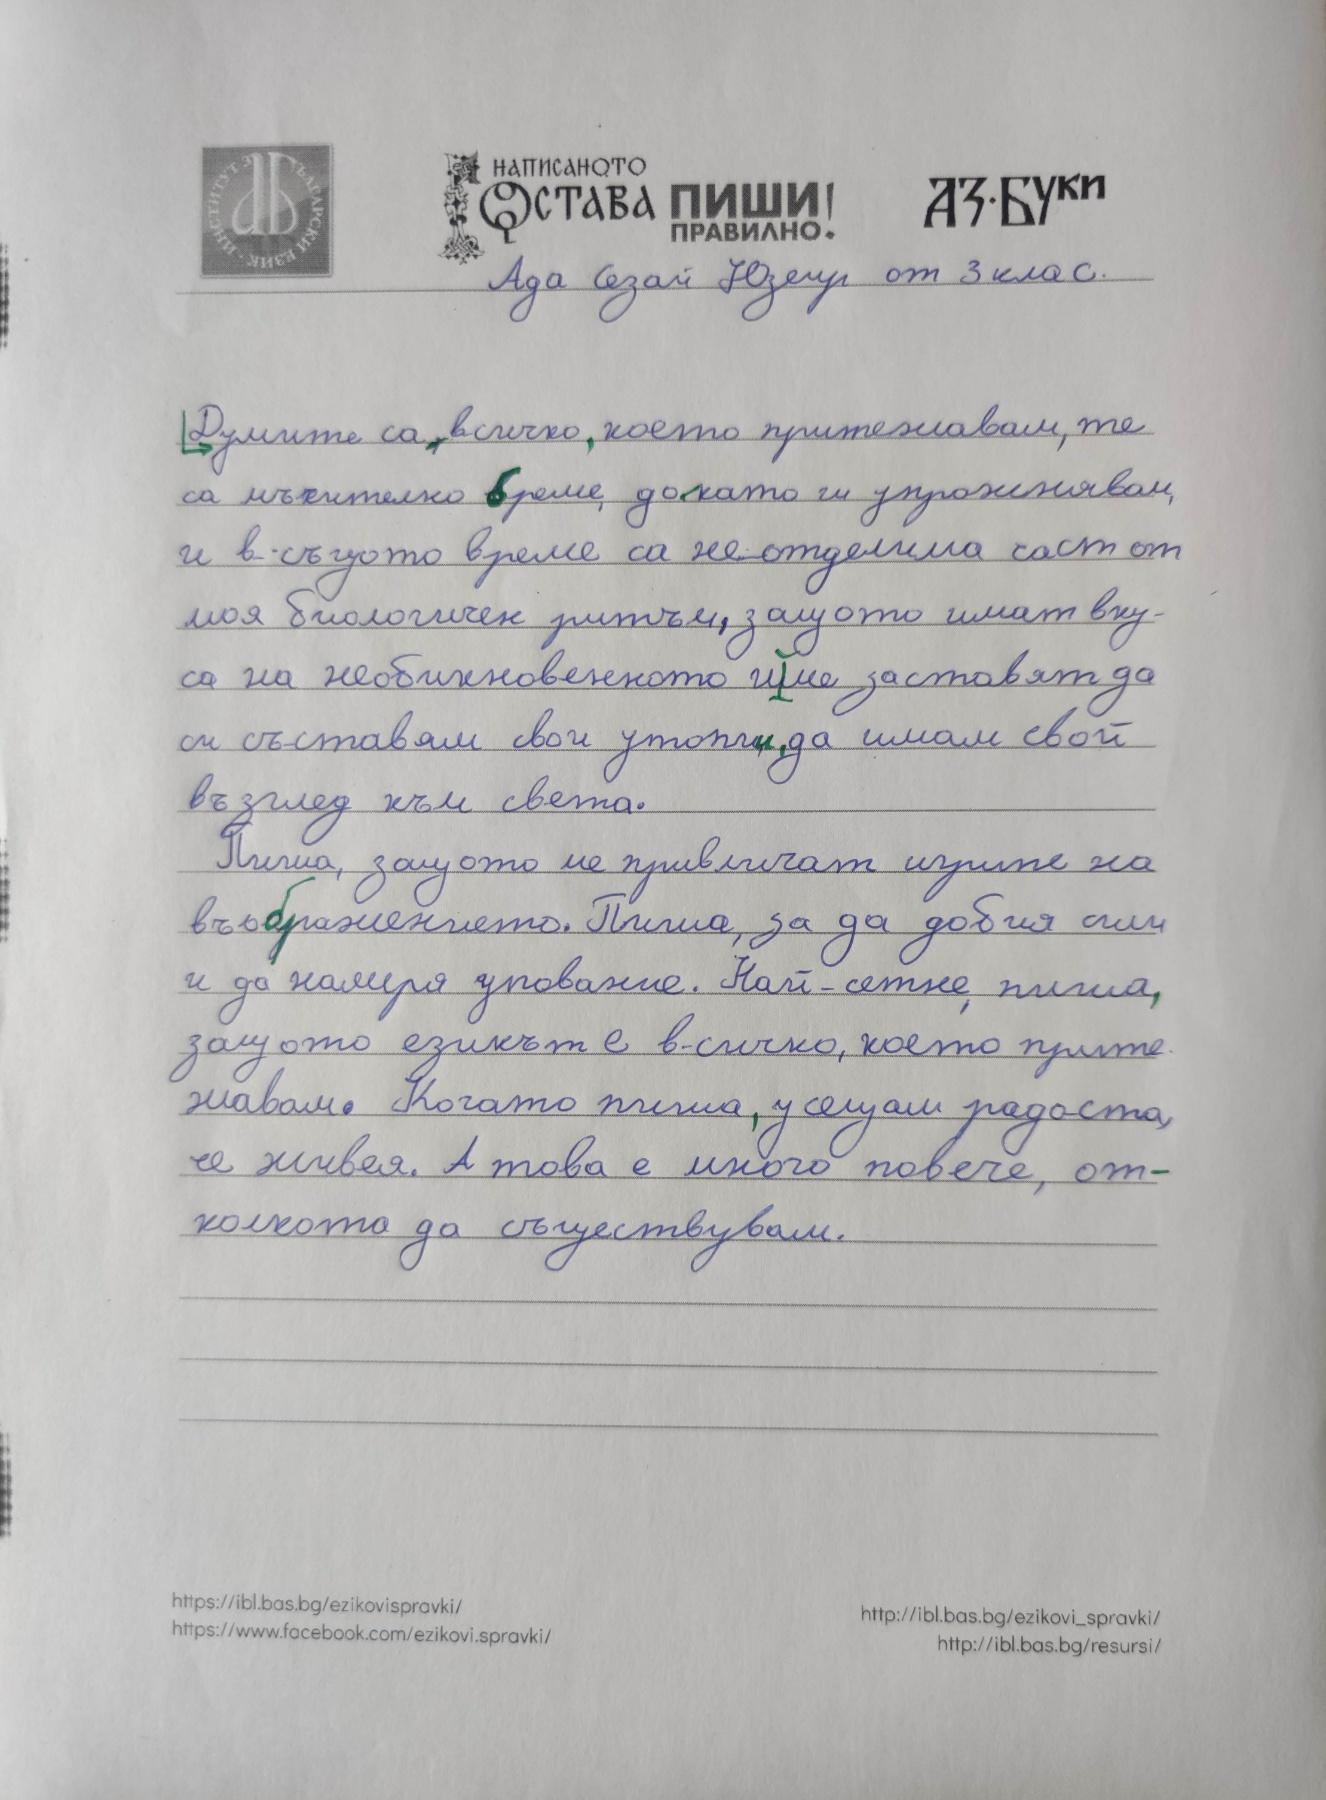 ИНСТИТУТ ЗА БЪЛГАРСКИ ЕЗИК
НАПИСАНОТО
ОСТАВА ПИШИ
ПРАВИЛНО!
АЗ·БУКИ
Ада Сезай от 3 клас.
Думите са, всичко, което притежавам, те
са мъчително бреме, докато ги упражнявам,
и в-същото време са не-отделима част от
моя биологичен ритъм, защото имат вку-
са на необикновенното и ме заставят да
си съставям свои утопии, да имам свой
възглед към света.
Пиша, защото ме привличат игрите на
въображението. Пиша, за да добия сили
и да намеря упование. Най-сетне, пиша,
защото езикът е в-сичко, което прите-
жавам. Когато пиша, усещам радоста,
че живея. А това е много повече, от-
колкота да съществувам.
https://ibl.bas.bg/ezikovispravki/
https://www.facebook.com/ezikovi.spravki/
http://ibl.bas.bg/ezikovi_spravki/
http://ibl.bas.bg/resursi/